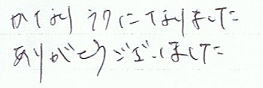 かなり ラクになりました
ありがとうございました